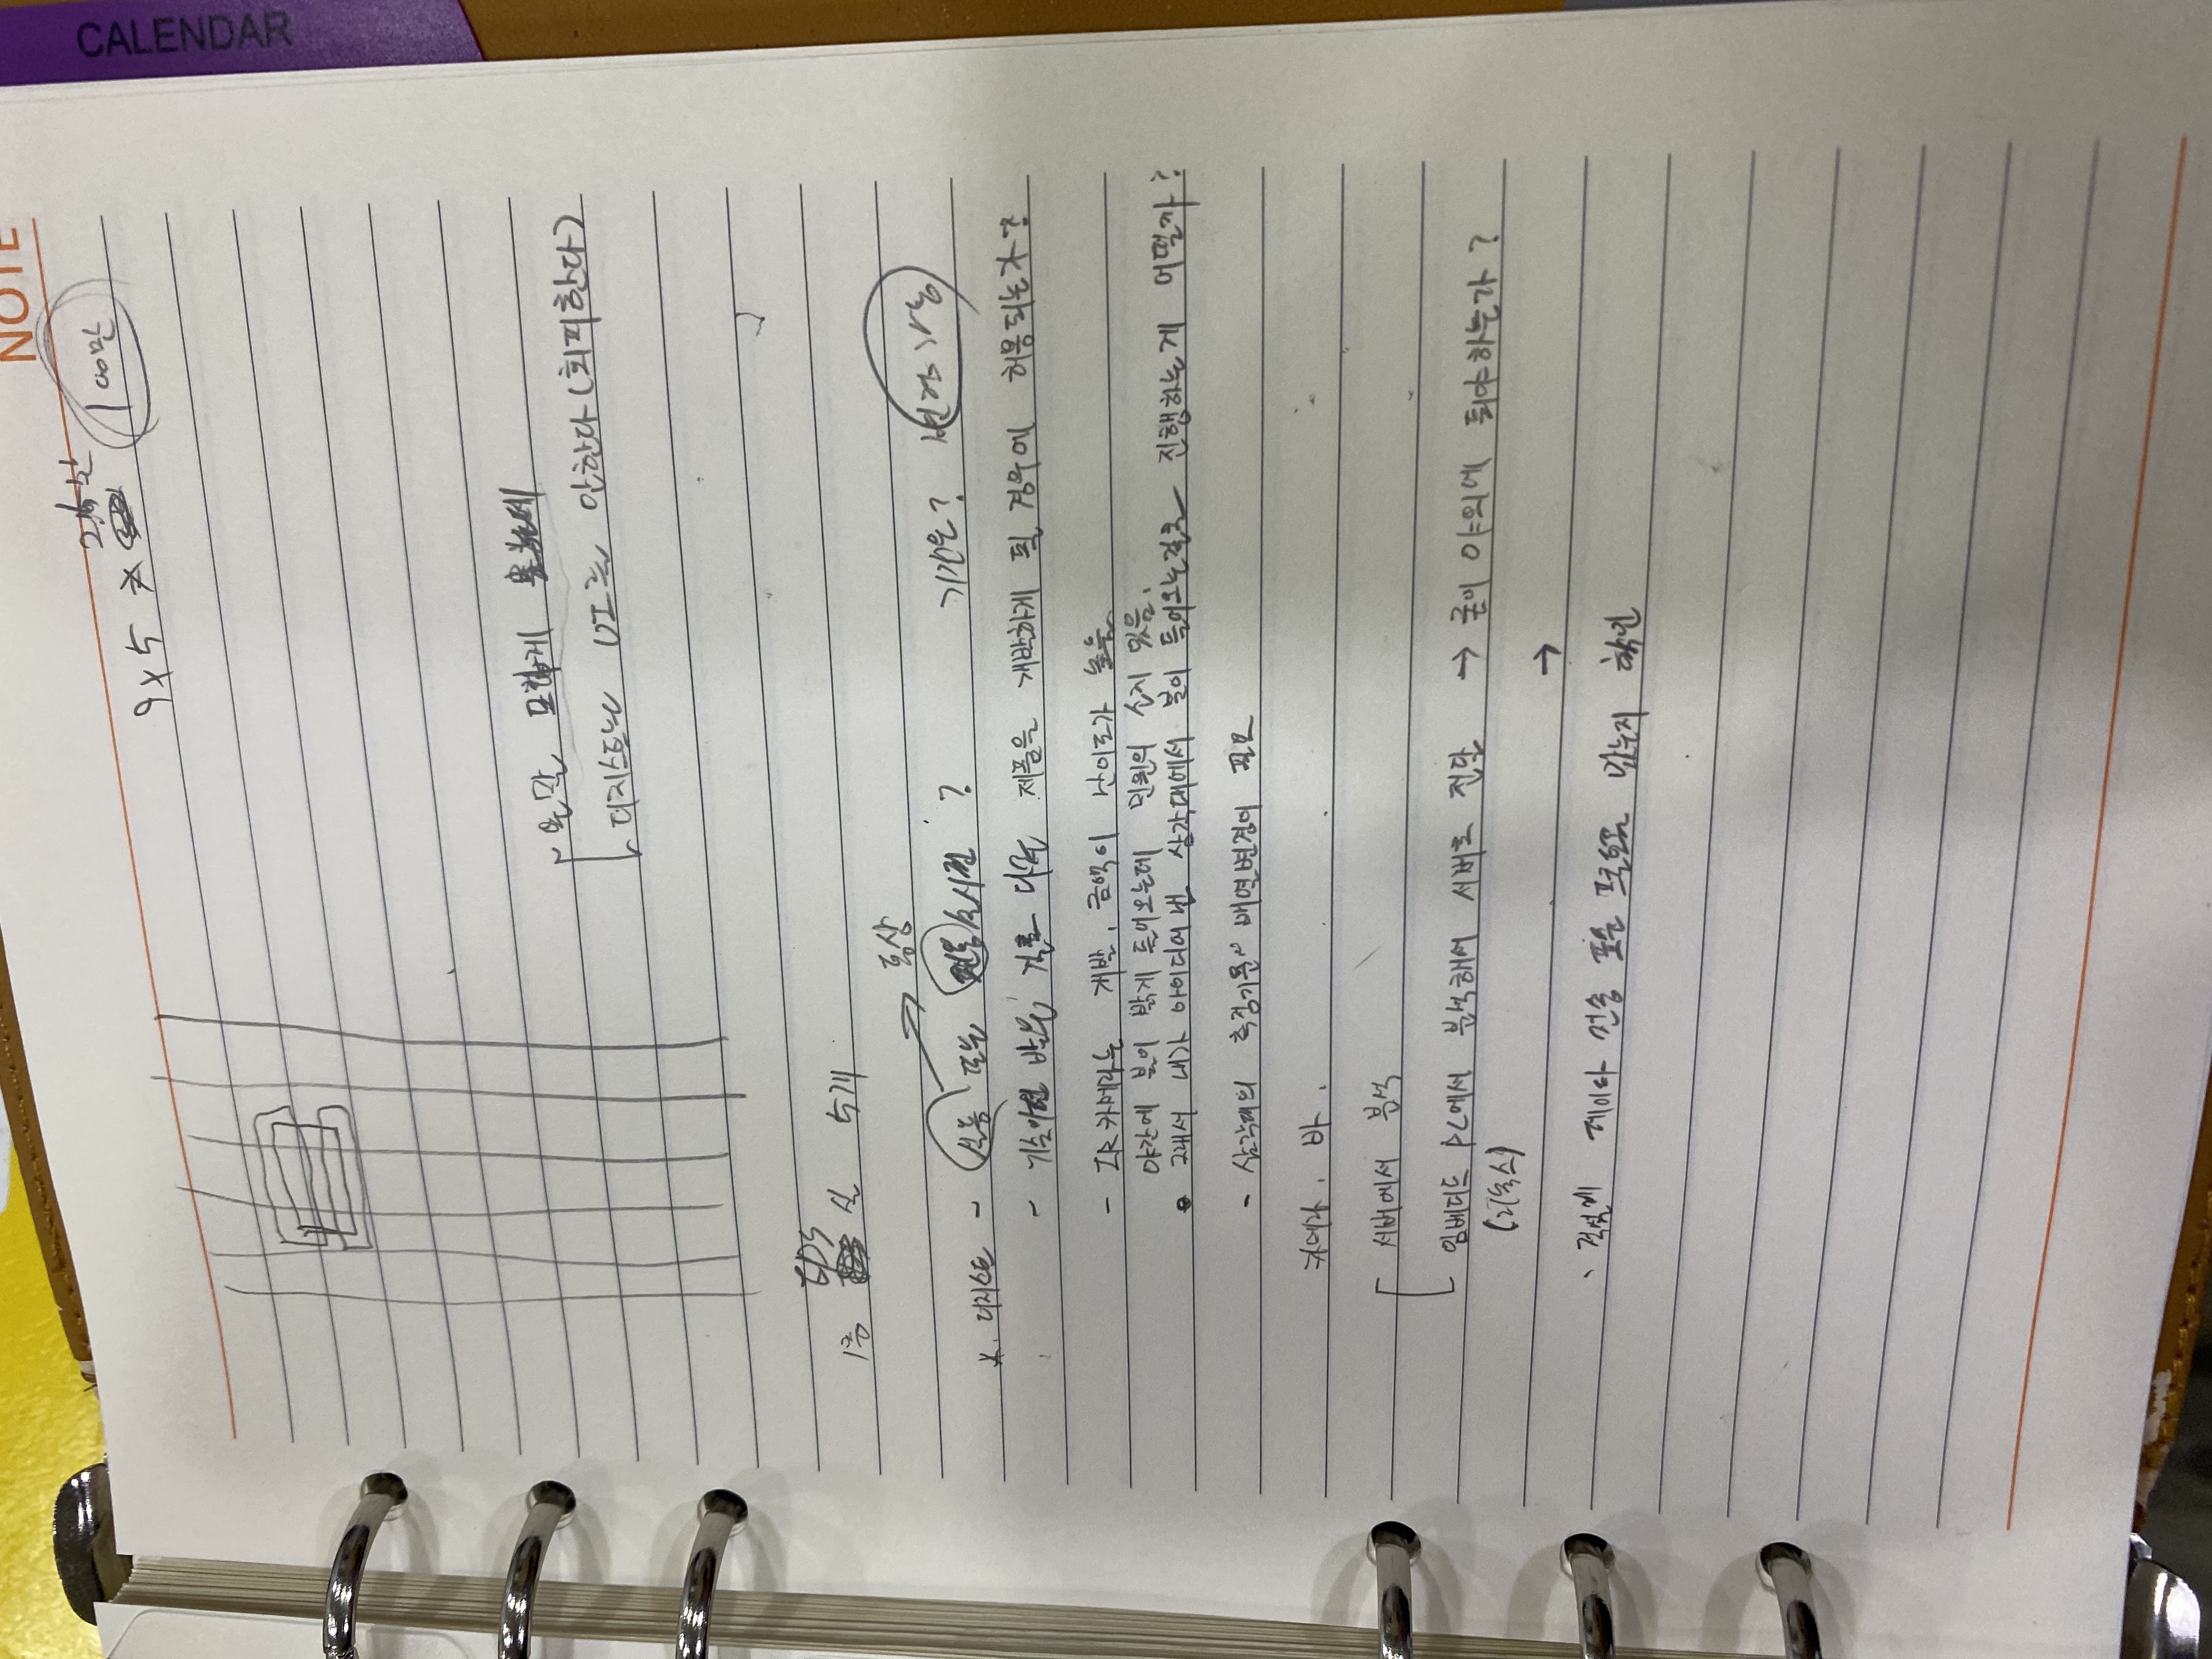 NOTE
CALENDAR
9 x 5 x 2.5만 100만
은 말 모하게
디지스트는 UI는 안한다 (회피한다)
EPS
1층 실 5개
통상
* 디지스트 - 실증 또는 ? 기간은? 변경가능
- 기술이전 받은 걸로 다른 제품을 개발하게 될 경우에 허용되는가?
- IR카메라는 개발, 금액이 난이도가 높음.
야간에 불이 밝게 들어오는데 민원의 소지 있음.
• 그래서 내가 아이디어 낸 삼각대에서 불이 들어오는걸로 진행하는게 어떨까?
- 삼각대의 측정기둥 배열변경이 필요
카메라, 바.
서버에서 분석
임베디드 PC에서 분석해서 서버로 전달 → 굳이 야외에 둬야하는가?
(리눅스)
→
적설계 데이타 전송 표준 프로토콜 있는지 확인